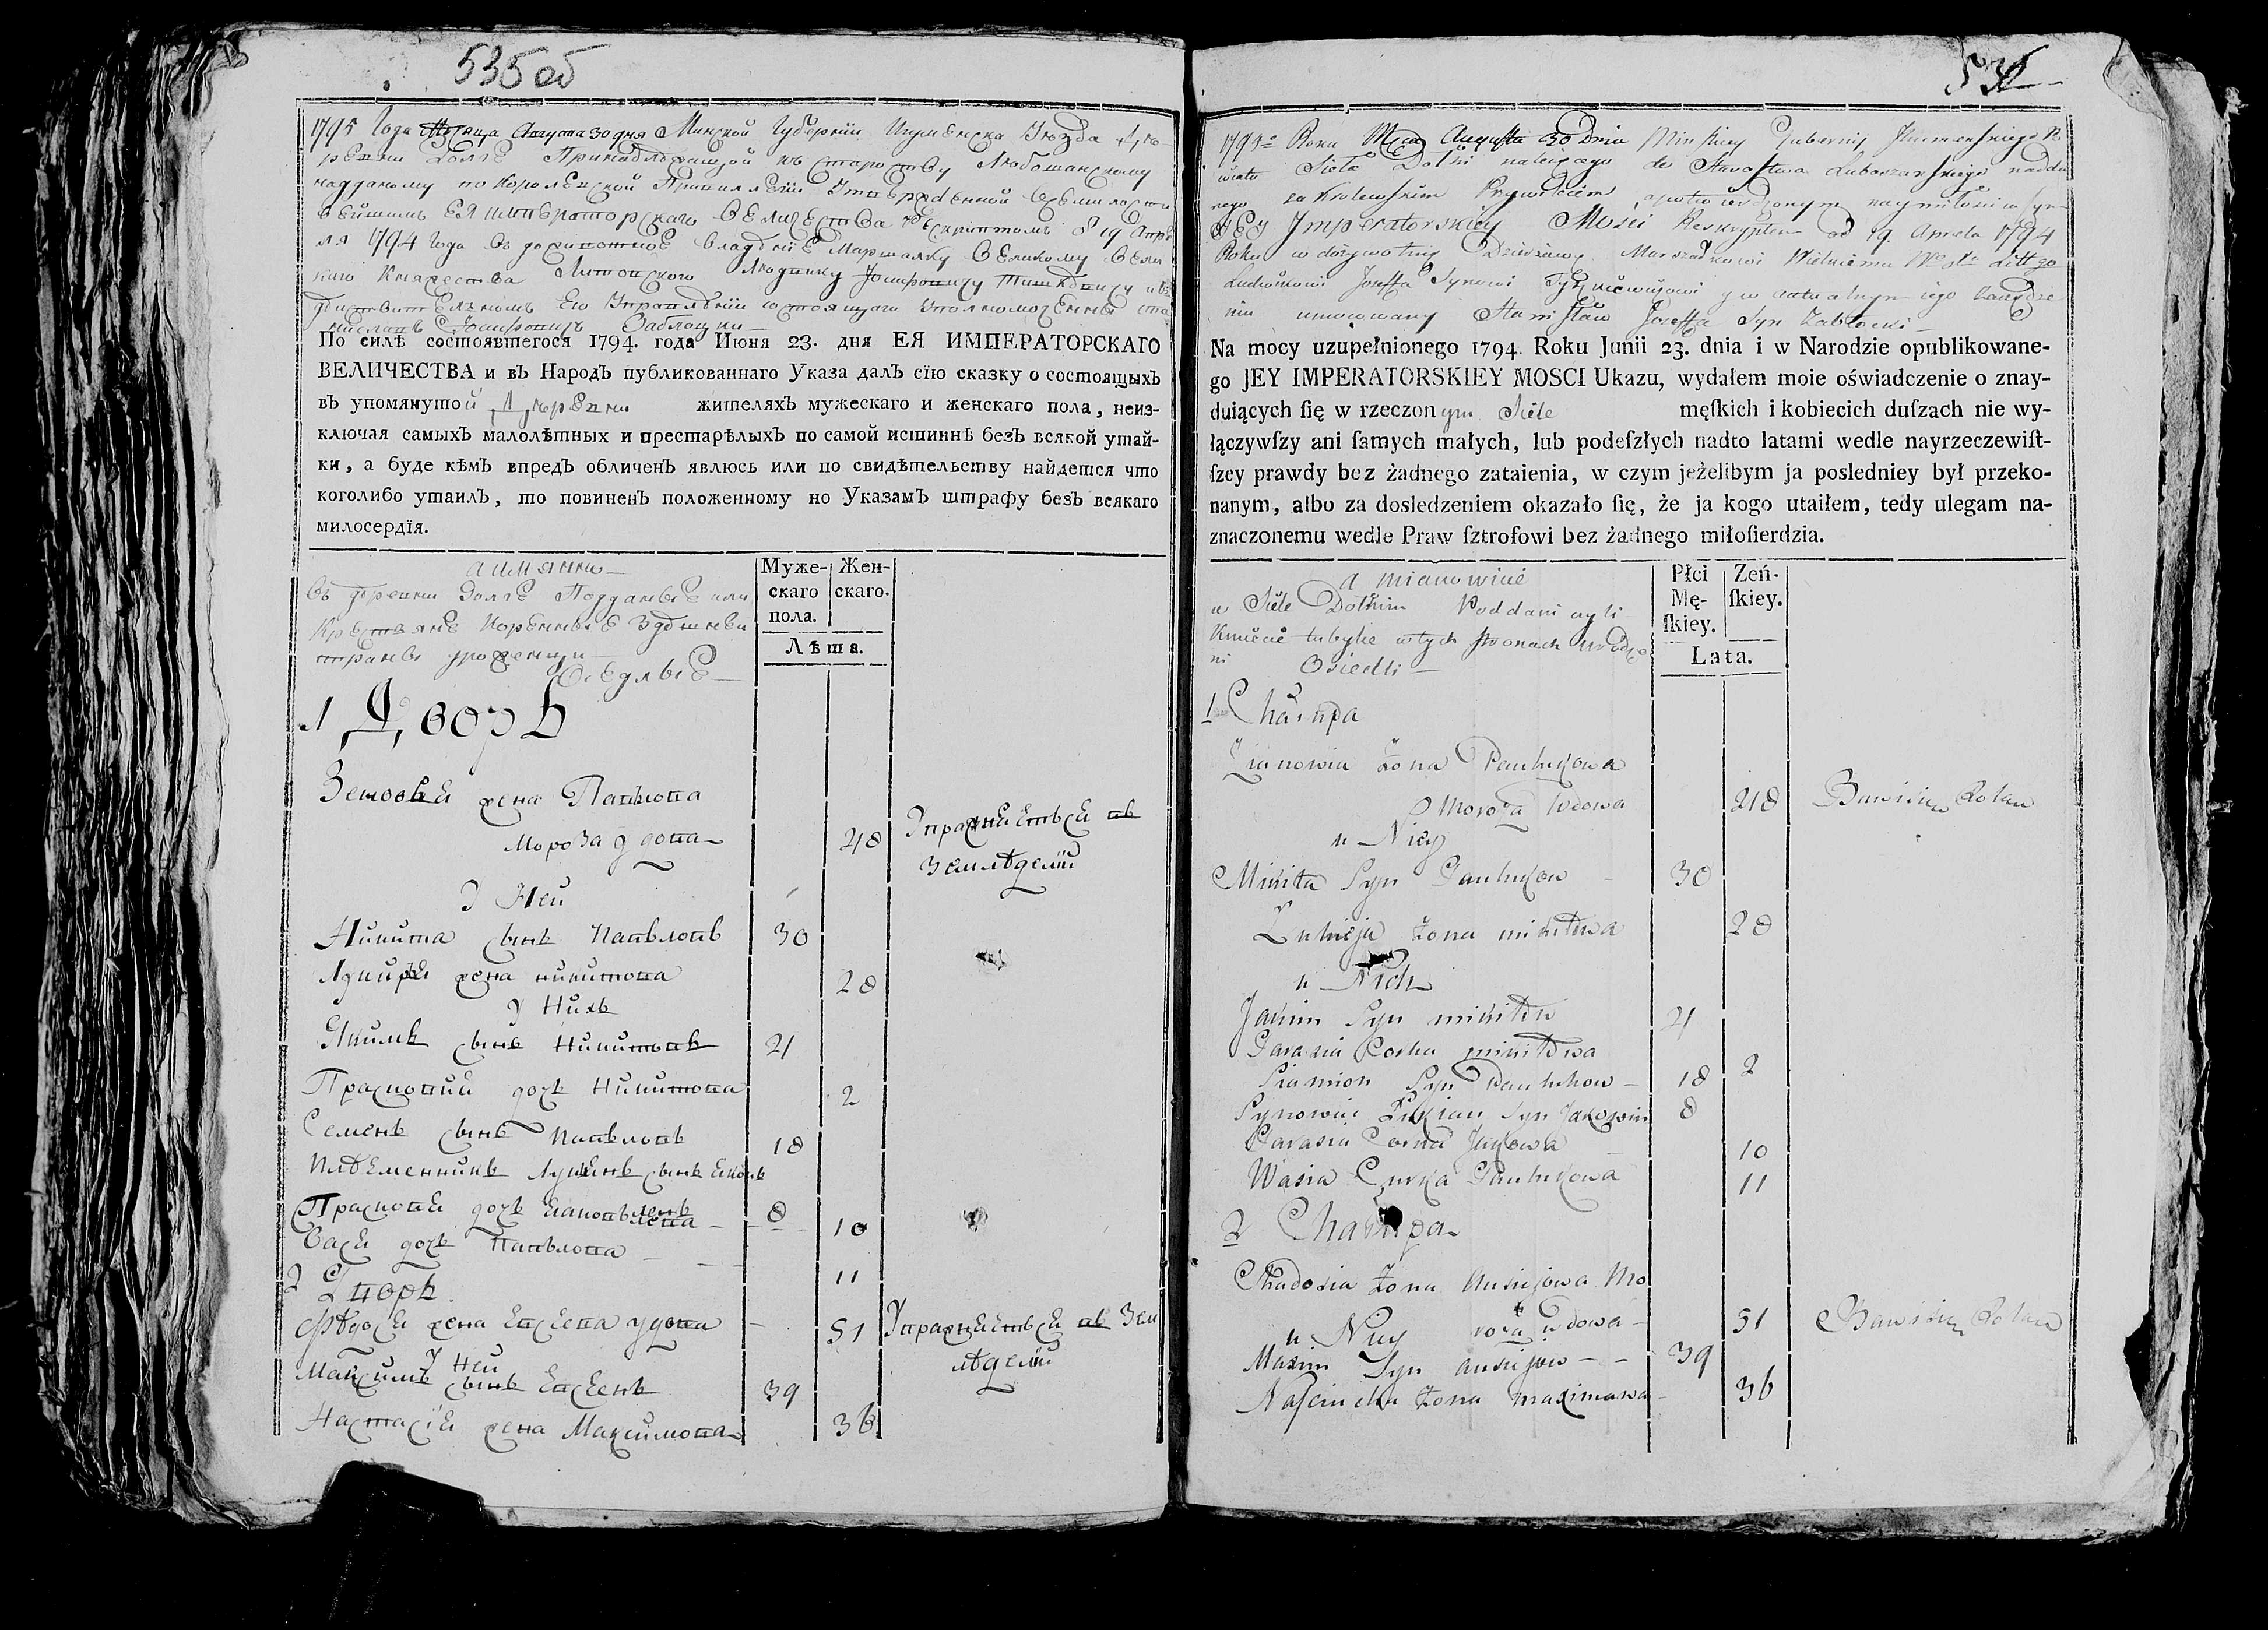 535 об
1795 Года Месяца Августа 30 дня Минской Губернии Игуменска Уезда Де-
ревни Долге Принадлежащой къ староству Любошанскому
наданому по Королевской Привилегии Утвержденной Всемилости
вейшимъ ЕЯ Императорскаго Величества Рескриптомъ 19 Апре
ля 1794 Года въ владение Маршалку Великому Вели
каго Княжества Литовского Людвику Иосифовичу Тишкевичу и въ
действителномъ Его Управлении состоящого Уполномоченны Ста
ниславъ Иосифовичъ Заблоцки
По силѣ состоявшегося 1794. года Июня 23. дня ЕЯ ИМПЕРАТОРСКАГО
ВЕЛИЧЕСТВА и въ Народъ публикованнаго Указа далъ сїю сказку о состоящыхъ
въ упомянутой Деревни жителяхъ мужескаго и женскаго пола, неиз-
ключая самыхъ малолѣтныхъ и престарѣлыхъ по самой истиннѣ безъ всякой утай-
ки, а буде кѣмъ впредъ обличенъ явлюсь или по свидѣтельству найдется что
коголибо утаилъ, то повиненъ положенному по Указамъ штрафу безъ всякаго
милосердїя.
а имянно
въ деревни Долге Подданые или
Крестяне Коренные Здешневи
страны уроженци
Оседлые
Муже-скаго пола. Жен-скаго.
Лѣта.
1 Дворъ
Зеновея жена Павлова
Мороза вдова 48 Упражняеться въ
земледелии
У Ней
Никита сынъ Павловъ 30
Лукирея жена никитова 28
У Нихъ
Якимъ сынъ Никитовъ 21
Прасковия дочь Никитова 2
Семенъ сынъ Павловъ 18
Племенникъ Лукянъ сынъ Яковъ
левъ 8
Прасковея дочь Яковлева 10
Вася дочь Павлова 11
2 Дворъ
Федося жена Евсева вдова 51 Упражняеться въ Зем
леделии
У Ней
Максимъ сынъ Евсеевъ 39
Настасия жена Максимова 36
536
1795 Roku Mca Augusta 30 Dnia Minskiey Gubernij Ihumenskiego Po
wiatu Sieła Dołhi należącego do Starostwa Luboszanskiego nadda
nego za Krolewskim Przywileiem, potwierdzonym naymiłościwszym
JEY Imperatorskiey Mosci Reskryptem od 19. Aprela 1794
Roku w dożywotnią Dzierżawę Marszałkowi Wielkiemu Litt go
Ludwikowi Joseffa Synowi Tyszkiewiczowi y w aktualnym iego Zarządze
niu umocowany Stanisław Joseffa Syn Zabłocki
Na mocy uzupełnionego 1794. Roku Junii 23. dnia i w Narodzie opublikowane-
go JEY IMPERATORSKIEY MOSCI Ukazu, wydałem moie oświadczenie o znay-
duiących ſię w rzeczonym Siele męſkich i kobiecich duſzach nie wy-
łączywſzy ani ſamych małych, lub podeſzłych nadto latami wedle nayrzeczewiſt-
ſzey prawdy bez żadnego zataienia, w czym jeżelibym ja posledniey był przeko-
nanym, albo za dosledzeniem okazało ſię, że ja kogo utaiłem, tedy ulegam na-
znaczonemu wedle Praw ſztrofowi bez żadnego miłoſierdzia.
a mianowicie
w Siele Dołhim Poddani czyli
Kmiecie tubylce w tych stronach urodze
ni Osiedli
Płci Mę-ſkiey. Zeń-ſkiey.
Lata.
1 Chałupa
Zianowia Żona Paułukowa
Moroza Wdowa 48 Bawisie Rolan
u Niey
Mikita Syn Paułukow 30
Łukieja Żona mikitowa 28
u Nich
Jakim Syn mikitow 21
Parasia Corka mikitowa 2
Siamion Syn Paułukow 18
Synowiec Łukian Syn Jakowiew 8
Parasia Corka Jakowa 10
Wasia Curka Paułukowa 11
2 Chałupa
Chadosia Żona Ausiejowa Mo
roza Wdowa 51 Bawisie Rolan
u Niey
Maxim Syn Ausiejow 39
Naściucha Żona maximowa 36